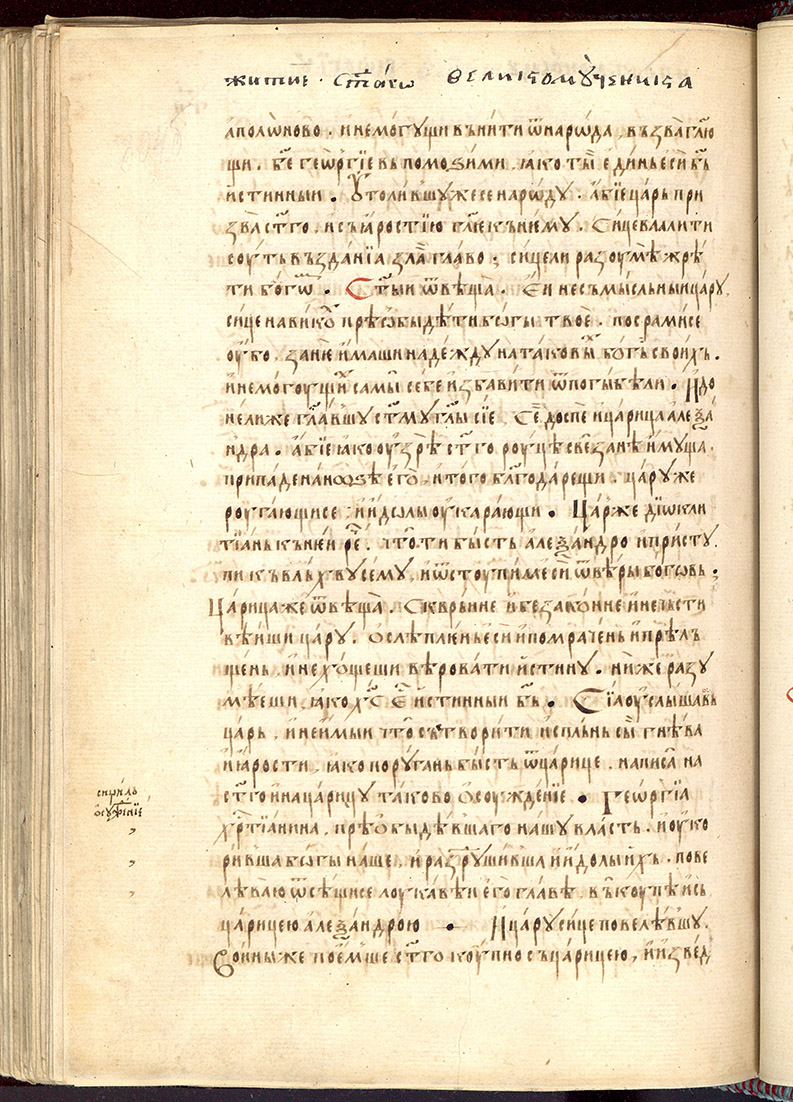 житиⷷе · ст҃аго великомꙋченика
аполѡново . и не могꙋщи вънити ѿ нарѡда , възва гл҃ю
щи . бж҃е геѡргїе въ помози ми . ꙗко ты единь еси бъ
истинныи . ꙋтолившꙋ же се нарѡдꙋ . абїе царь при
зва ст҃го . и съ ꙗростїю гл҃е къ немꙋ . Сице ли
соуть въз'данїа злаа главо ; сице ли разоумѣ жрѣ
ти богѡⷨ . Ст҃ыи ѿвѣща . Еи несъмысльныи цару
сице навикоⷯ прѣѡбыдѣти богы твое . посрами се
оубо . зане имаши надеждꙋ на таковыⷯ боѕѣ своихъ .
и не могоущиⷯ самы себе избавити ѿ погыбѣли . И до
нелиже гл҃авшꙋ ст҃мꙋ гл҃ы сїе , се доспе и царица алеѯа
ндра . абїе ꙗко оузрѣ ст҃го роуцѣ свезанѣ имꙋща .
припаде на ноѕѣ его . и того бл҃годарещи . царꙋ же
роугающи се и идолы оукарающи . Царже дїѡкли
тїань къ неи рⷱ҇е . что ти бысть алеѯандро и пристꙋ
пи къ влъхвꙋ семꙋ , и ѿстоупи ме си ѿ вѣры боговь ;
Царица же ѿвѣща . Сквръніне и безаконіне и нечьсти
вѣиши царꙋ . ослѣплень еси и помрачень и прѣлъ
щень . и не хощеши вѣровати истинꙋ . ниже разꙋ
мѣеши , ꙗко хс҃ ес҃ истинныи бъ҃ . Сїа оуслышавъ
царь . и не имыи что сътворити исплънь сы гнѣва
и ꙗрости . ꙗко порꙋгань бысть ѿ царице . написа на
ст҃го и на царицꙋ таково осоужденїе . Геѡргїа
хрⷭ҇тїанина , прѣобыдѣвшаго нашꙋ власть . и оуко
рившa богы наше , и разрꙋшивша идолы ихь . пове
лѣваю ѿсѣщи се лоукавѣи его главѣ , въкоупѣ и съ
царицею алеѯандрою . И царꙋ сице повелѣвшꙋ .
Воины же поемше ст҃го коупно съ царицею , и извед
осꙋжⷣенїе